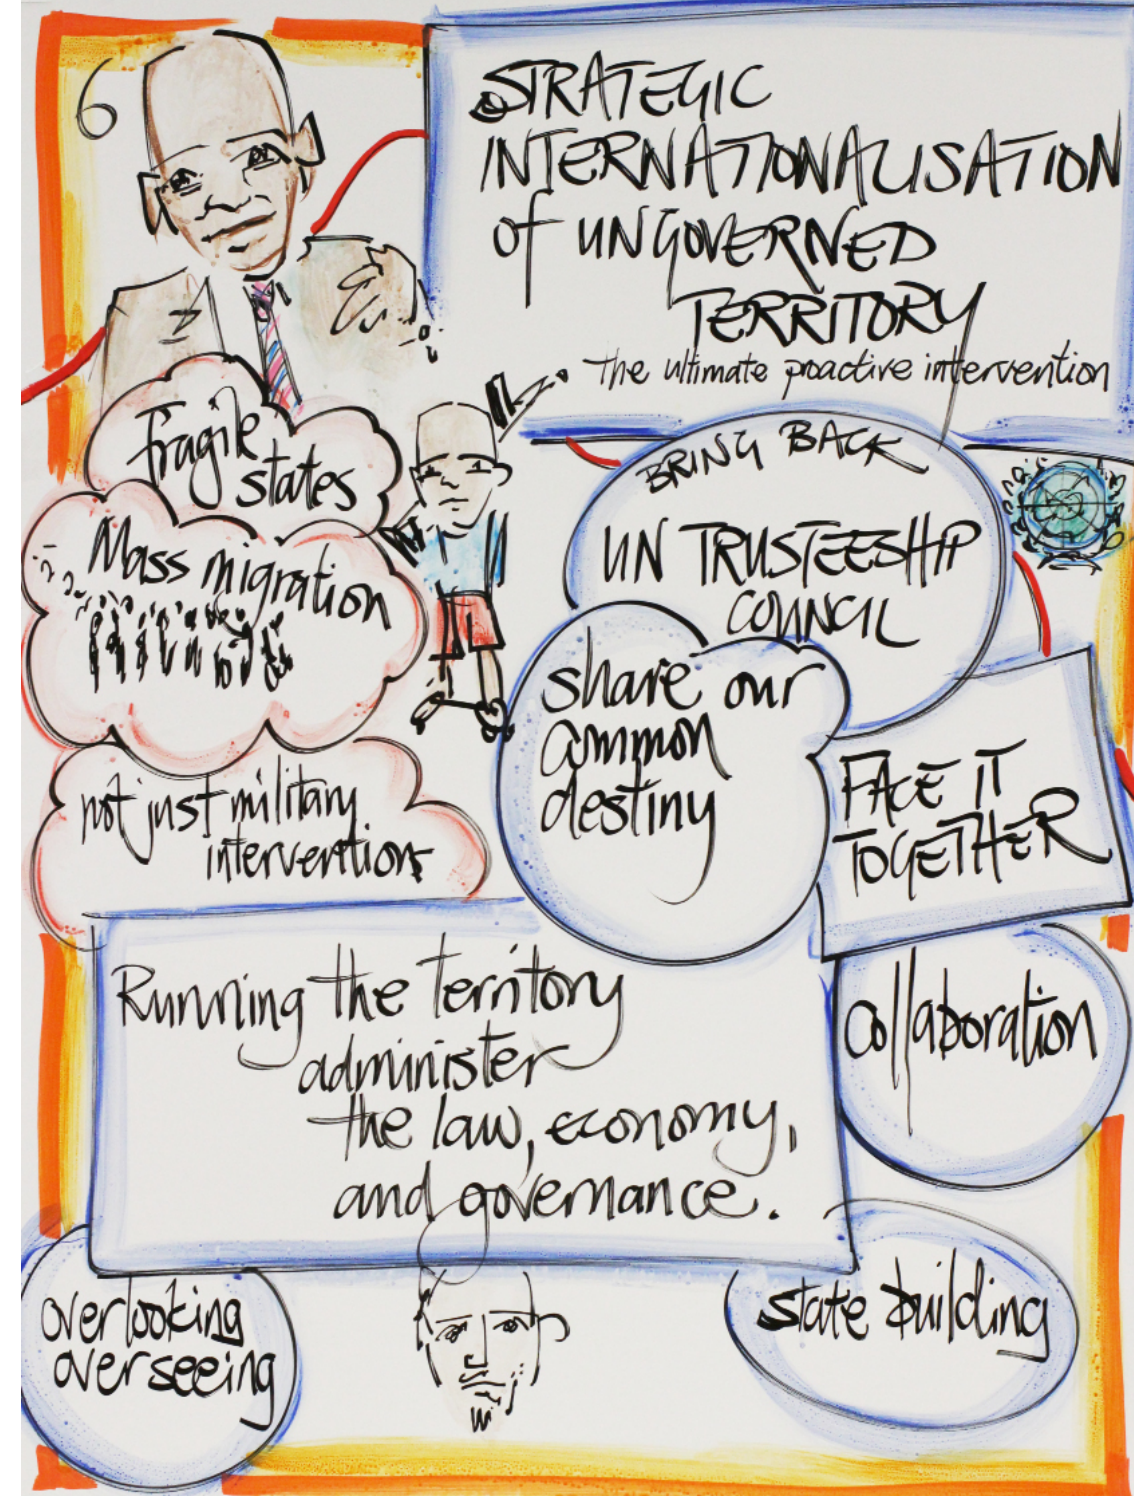 6
STRATEGIC
INTERNATIONALISATION
of UNGOVERNED
TERRITORY
The ultimate proactive intervention
fragile
states
Mass migration
not just military
intervention
BRING BACK
UN TRUSTEESHIP
COUNCIL
share our
common
destiny
FACE IT
TOGETHER
Running the territory
administer
the law, economy,
and governance.
collaboration
overlooking
overseeing
state building